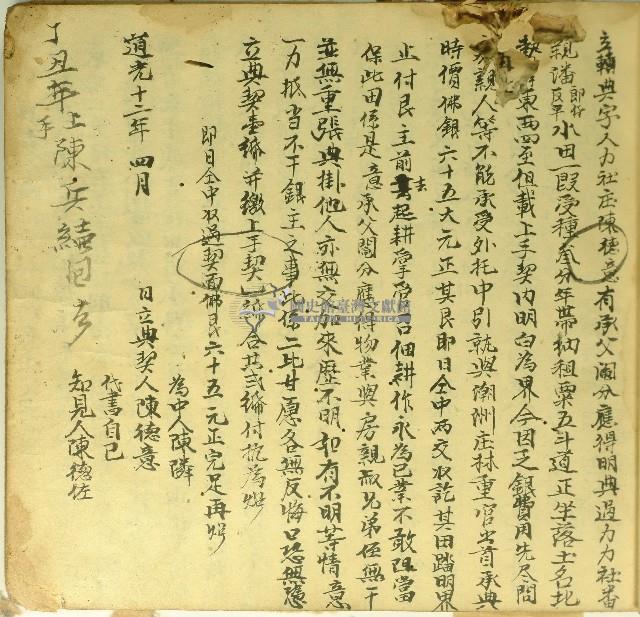 立轉典字人力社庄陳德意有承父鬮分應得明典過力力社番
親潘 水田一段受種 分年帶納租粟五斗道正坐落土名
東西四至俱載上手契內明白為界今因乏銀費用先尽問
房親人等不能承受外托中引就與潮州庄林重官出首承典
時價佛銀六十五大元正其艮即日仝中兩交收訖其田踏明界
止付艮主前去起耕掌 佃耕作永為己業不敢阻當
保此田係是意承父鬮分應得物業與房親叔兄弟侄無干
並無重張典掛他人亦無交加來歷不明如有不明等情意
一力抵当不干銀主之事此係二比甘愿各無反悔口恐無憑
立典契壹紙并繳上手契 紙合共弍紙付執為炤
即日仝中收過契面佛艮六十五元正完足再炤
為中人陳隣
道光十二年四月 日立典契人陳德意
代書自己
知見人陳德佐
丁丑年上手陳
國史館臺灣文獻館
TAIWAN HISTORICA